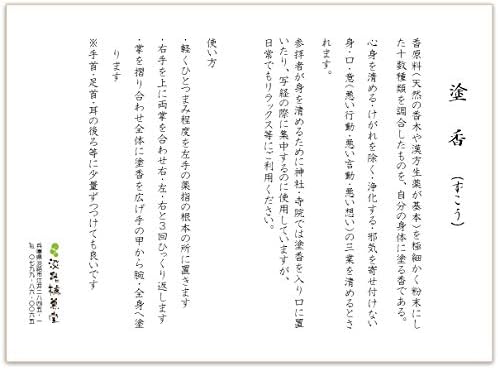 塗香(ずこう)
香原料(天然の香木や漢方生薬が基本)を極細かく粉末にし
た十数種類を調合したものを、自分の身体に塗る香である。
心身を清める・けがれを除く・浄化する・邪気を寄せ付けない
身・口・意(悪い行動・悪い言動・悪い想い)の三業を清めるとさ
れます。
参拝者が身を清めるために神社・寺院では塗香を入り口に置
いたり、写経の際に集中するのに使用していますが、
日常でもリラックス等にご利用ください。
使い方
・軽くひとつまみ程度を左手の薬指の根本の所に置きます
・右手を上に両掌を合わせ右・左・右と3回ひっくり返します
・掌を摺り合わせ全体に塗香を広げ手の甲から腕・全身へ塗
ります
※手首・足首・耳の後ろ等に少量ずつつけても良いです
淡路梅薫堂
兵庫県淡路市江井2845-1
℡0799-86-0065